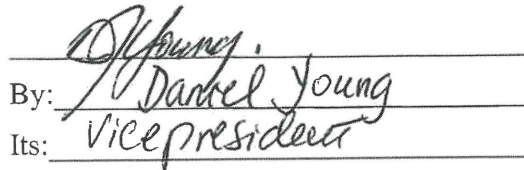 DJYoung.
By: Daniel Young
Its: Vice president